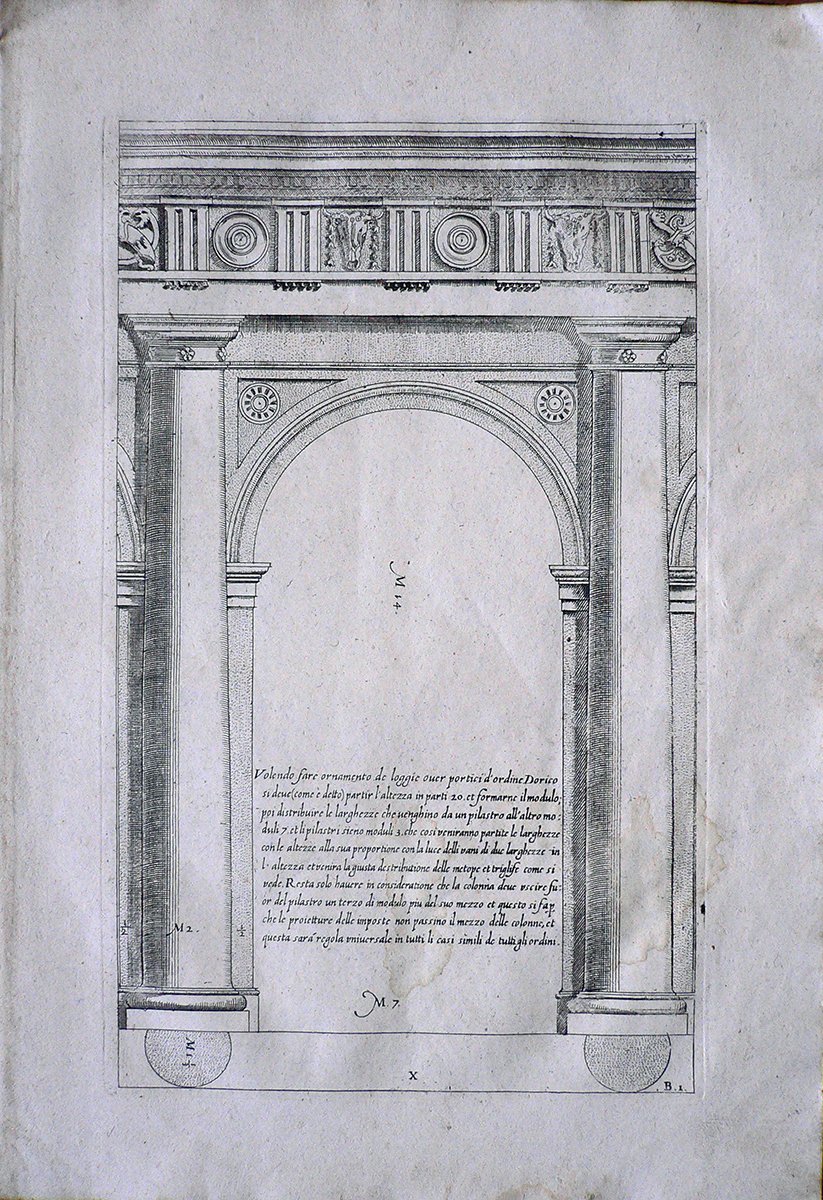 M 14.
Volendo fare ornamento de loggie ouer portici d'ordine Dorico
si deue (come è detto) partir l'altezza in parti 20. et formarne il modulo,
poi distribuire le larghezze che uenghino da un pilastro all'altro mo=
duli 7. et li pilastri sieno moduli 3. che cosi veniranno partite le larghezze
con le altezze alla sua proportione con la luce delli vani di due larghezze in
l'altezza et venira la giusta destributione delle metope et triglife come si
vede. Resta solo hauere in consideratione che la colonna deue vscire fu=
or del pilastro un terzo di modulo piu del suo mezzo et questo si fa p
che le proietture delle imposte non passino il mezzo delle colonne, et
questa sarà regola vniuersale in tutti li casi simili de tutti gli ordini.
1/2 M 2. 1/2
M. 7.
X
B. 1.